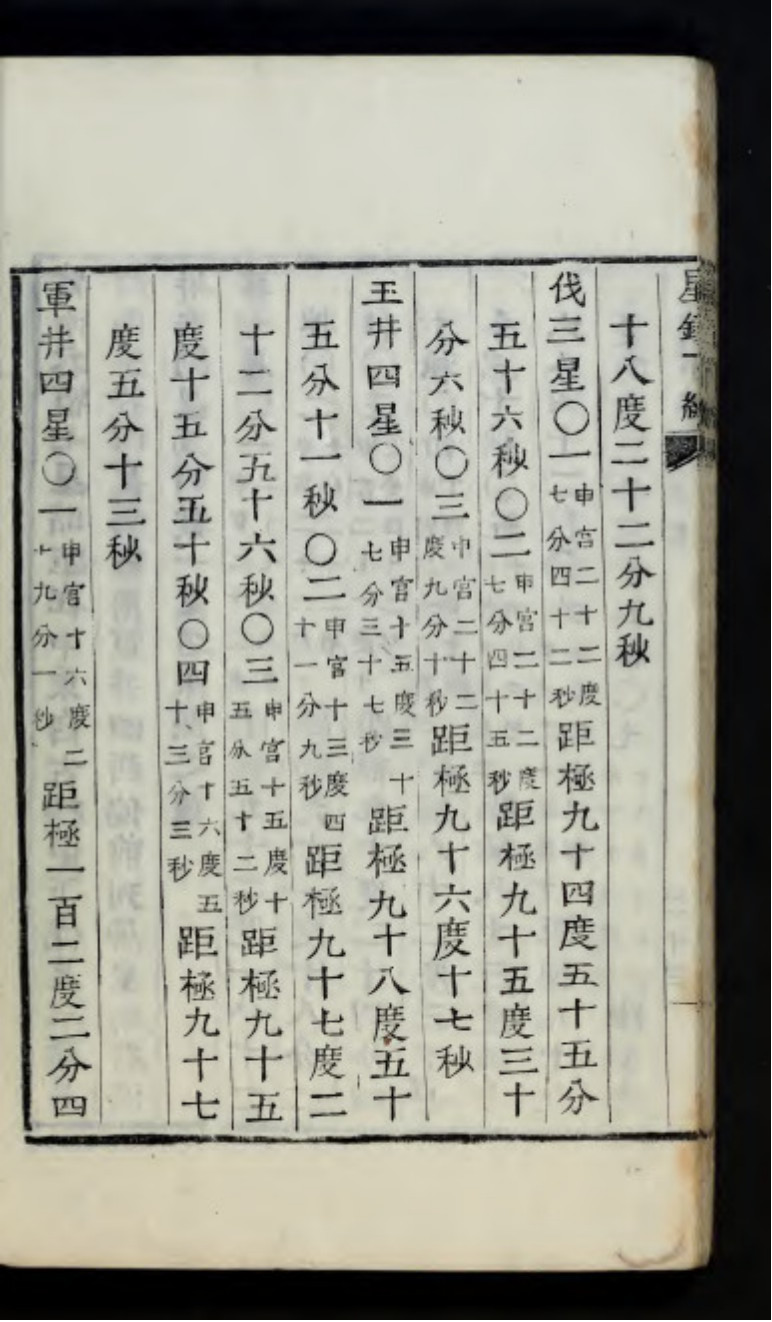 星
十八度二十二分九秒
伐三星〇一申宮二十二度七分四十二秒距極九十四度五十五分
五十六秒〇二申宮二十二度七分四十五秒距極九十五度三十
分六秒〇三申宮二十二度九分十秒距極九十六度十七秒
玉井四星〇一申宮十五度三十七分三十七秒距極九十八度五十
五分十一秒〇二申宮十三度四十一分九秒距極九十七度二
十二分五十六秒〇三申宮十五度十五分五十二秒距極九十五
度十五分五十秒〇四申宮十六度五十三分三秒距極九十七
度五分十三秒
軍井四星〇一申宮十六度二十九分一秒距極一百二度二分四